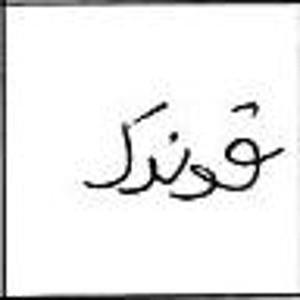 قوندک